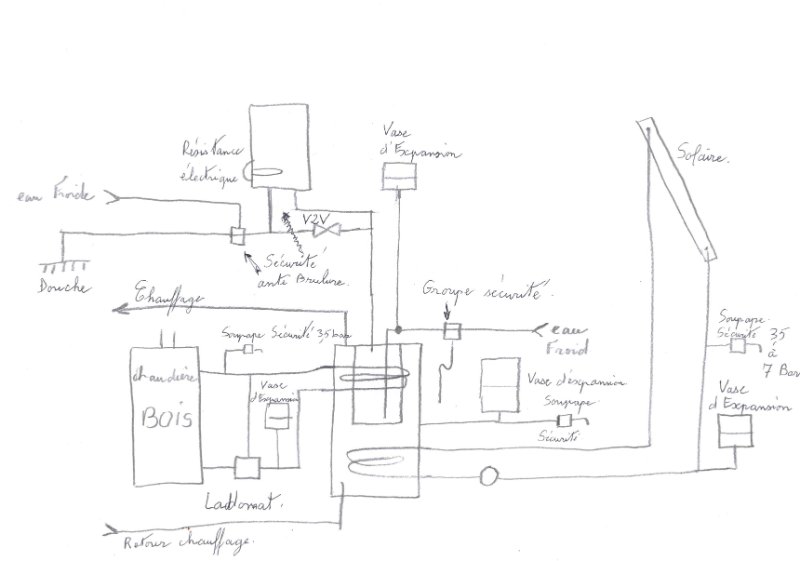 Vase
d'Expansion
Résistance
électrique
Solaire.
eau Froide
V2V
Sécurité
anti Brulure.
Douche
Groupe sécurité.
Chauffage
Soupape Sécurité 3,5 bar
eau
Froid
Soupape
Sécurité 3,5
à
7 Bar
chaudière
BOIS
Vase
d'Expansion
Vase d'éxpansion
Soupape
Sécurité
Vase
d'Expansion
Laddomat.
Retour chauffage.